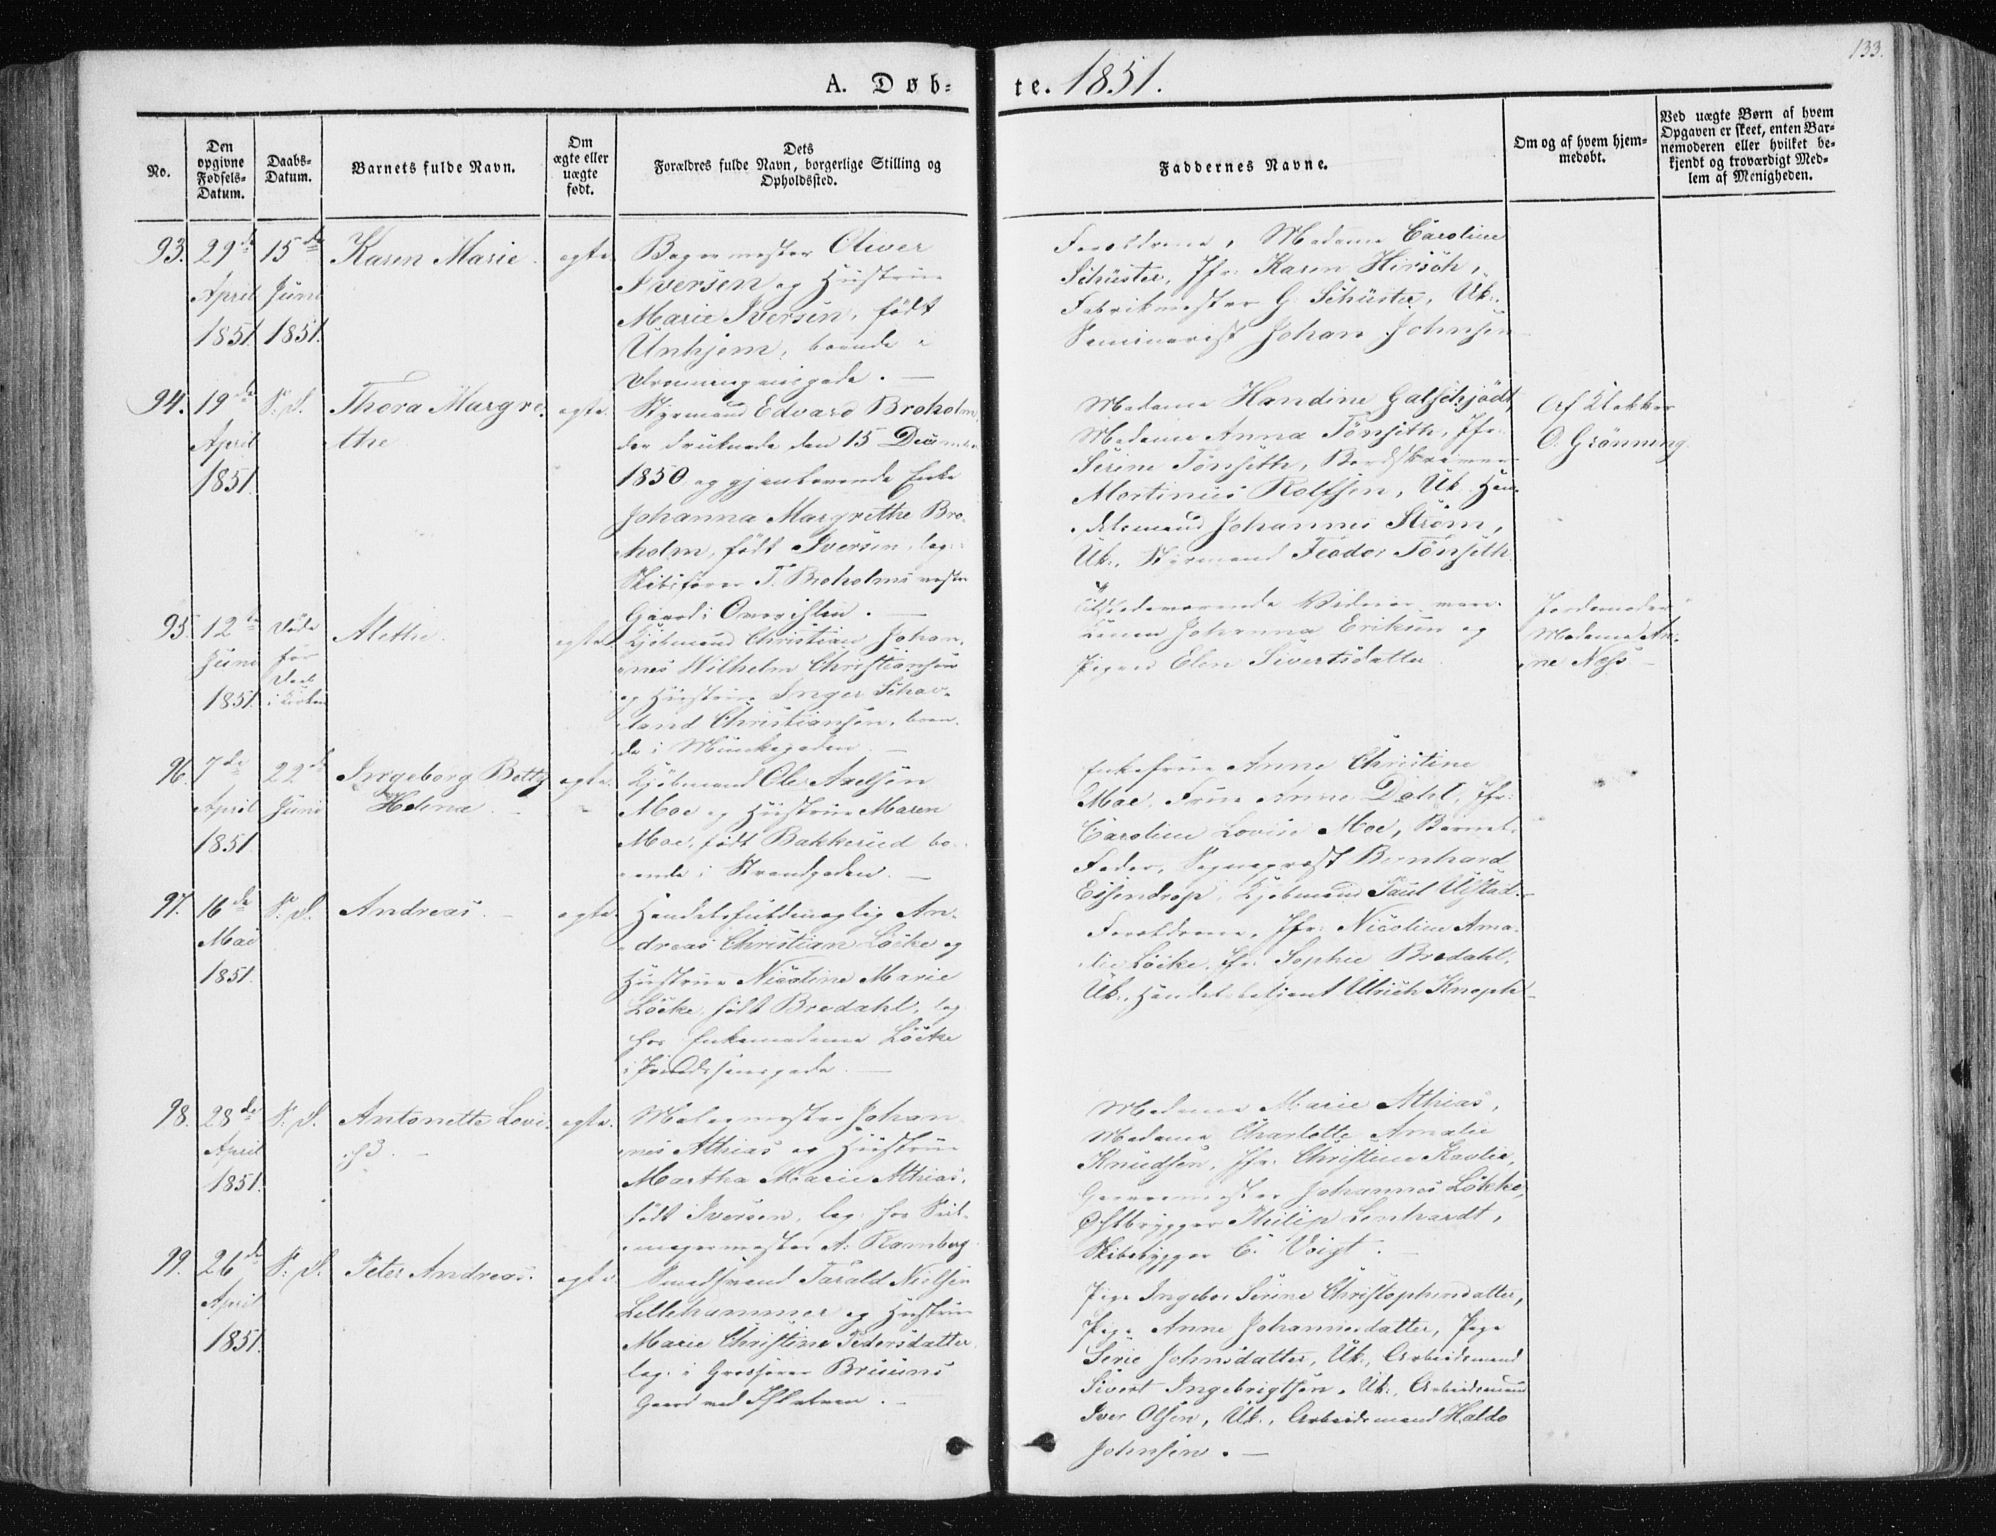 133.
A. Døb-
te. 1851.
No.
Den
opgivne
Fødsels-
Datum.
Daabs-
Datum.
Barnets fulde Navn.
Om
ægte eller
uægte
født.
Dets
Forældres fulde Navn, borgerlige Stilling og
Opholdssted.
Faddernes Navne.
Om og af hvem hjem-
medøbt.
Ved uægte Børn af hvem
Opgaven er skeet, enten Bar-
nemoderen eller hvilket be-
kjendt og troværdigt Med-
lem af Menigheden.
93.
29de
April
1851.
15de
Juni
1851.
Karen Marie.
ægte
Bagermester Oliver
Iversen og Hustrue
Marie Iversen, født
Unhjem, boende i
Dronningensgade. —
Forældrene, Madame Caroline
Schüster, Jfr: Karen Hirsch,
Fabrikmester G. Schüster, Uk:,
Seminarist Johan Johnsen
94.
19de
April
1851.
S: D.
Thora Margre-
the
ægte.
Styrmand Edvard Broholm,
der druknede den 15 December
1850 og gjenlevende Enke
Johanna Margrethe Bro-
holm, født Iversen, log:
Skibsfører T. Broholms
Gaard i
Madame Handine Galschjødt,
Madame Anna Tönseth, Jfr:
Serine Tönseth,
Martinus Rolfsen, Uk. Han-
delsmand Johannes Ström,
Uk., Styrmand Feodor Tönseth.
Af Klokker
O. Grönning.
95.
12te
Juni
1851.
Døde
før
Daab
i Kirken
Alethe.
ægte.
Kjöbmand Christian Johan-
nes Wilhelm Christiansen
og Hustrue Inger Schav-
land Christiansen, boen-
de i Munkegaden. —
Tilstedeværende
Johanna Eriksen og
Pigen Elen Sivertsdatter.
Jordemoder
Madame An-
ne Næss —
96.
7de
April
1851
22de
Juni
Ingeborg Betty
Helena. —
ægte.
Kjöbmand Ole Axelsen
Moe og Hustrue Maren
Moe, født Bakkerud bo-
ende i Strandgaden. —
Enkefrue Anne Christine
Moe, Frue Anne Dahl, Jfr:
Caroline Lovise Moe, Barnets
Fader, Sogneprest Bernhard
Eisendrop, Kjöbmand Paul Ulstad.
97.
16de
Mai
1851.
S: D.
Andreas. —
ægte.
Handelsfuldmægtig An-
dreas Christian Löcke og
Hustrue Nicoline Marie
Löcke, født Bredahl, log
hos Enkemadame Löcke
Forældrene, Jfr: Nicoline Ama-
lie Löcke, Jfr: Sophie Bredahl,
Uk:, Handelsbetjent Ulrich Knoph
98.
28de
April
1851.
S: D.
Antonette Lovi-
se. —
ægte.
Malermester Johan-
nes Athias og Hustrue
Martha Marie Athias,
født Iversen, log: hos Seil-
magermester A: Ramberg
Madame Marie Athias,
Madame Charlotte Amalie
Knudsen, Jfr: Christine Kavlie,
Garvermester Johannes Lökke,
Philip Lenhardt,
Skibsbygger C. Voigt. —
99.
26de
April
1851.
S: D.
Peter Andreas.
ægte.
Smedsvend Tarald Nielsen
Lillehammer og Hustrue
Marie Christine Pedersdatter
log: i Grosserer Bruuns
Gaard ved Ihlelven. —
Pige Ingebor Serine Christophersdatter,
Pige Anne Johannesdatter, Pige
Serie Johnsdatter, Uk:, Arbeidsmand
Sivert Ingebrigtsen, Uk., Arbeidsmand
Iver Olsen, Uk., Arbeidsmand Haldo
Johnsen. —